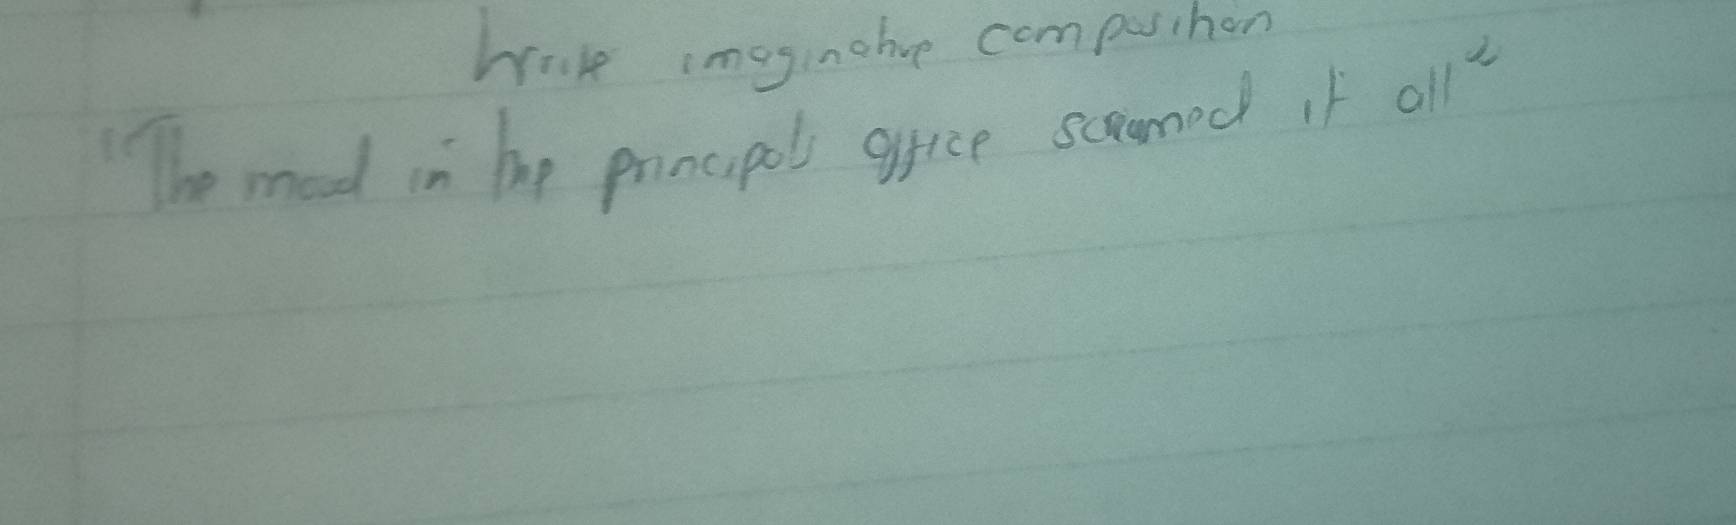 Write imaginative composition
"The mood in the principal's office screamed it all"